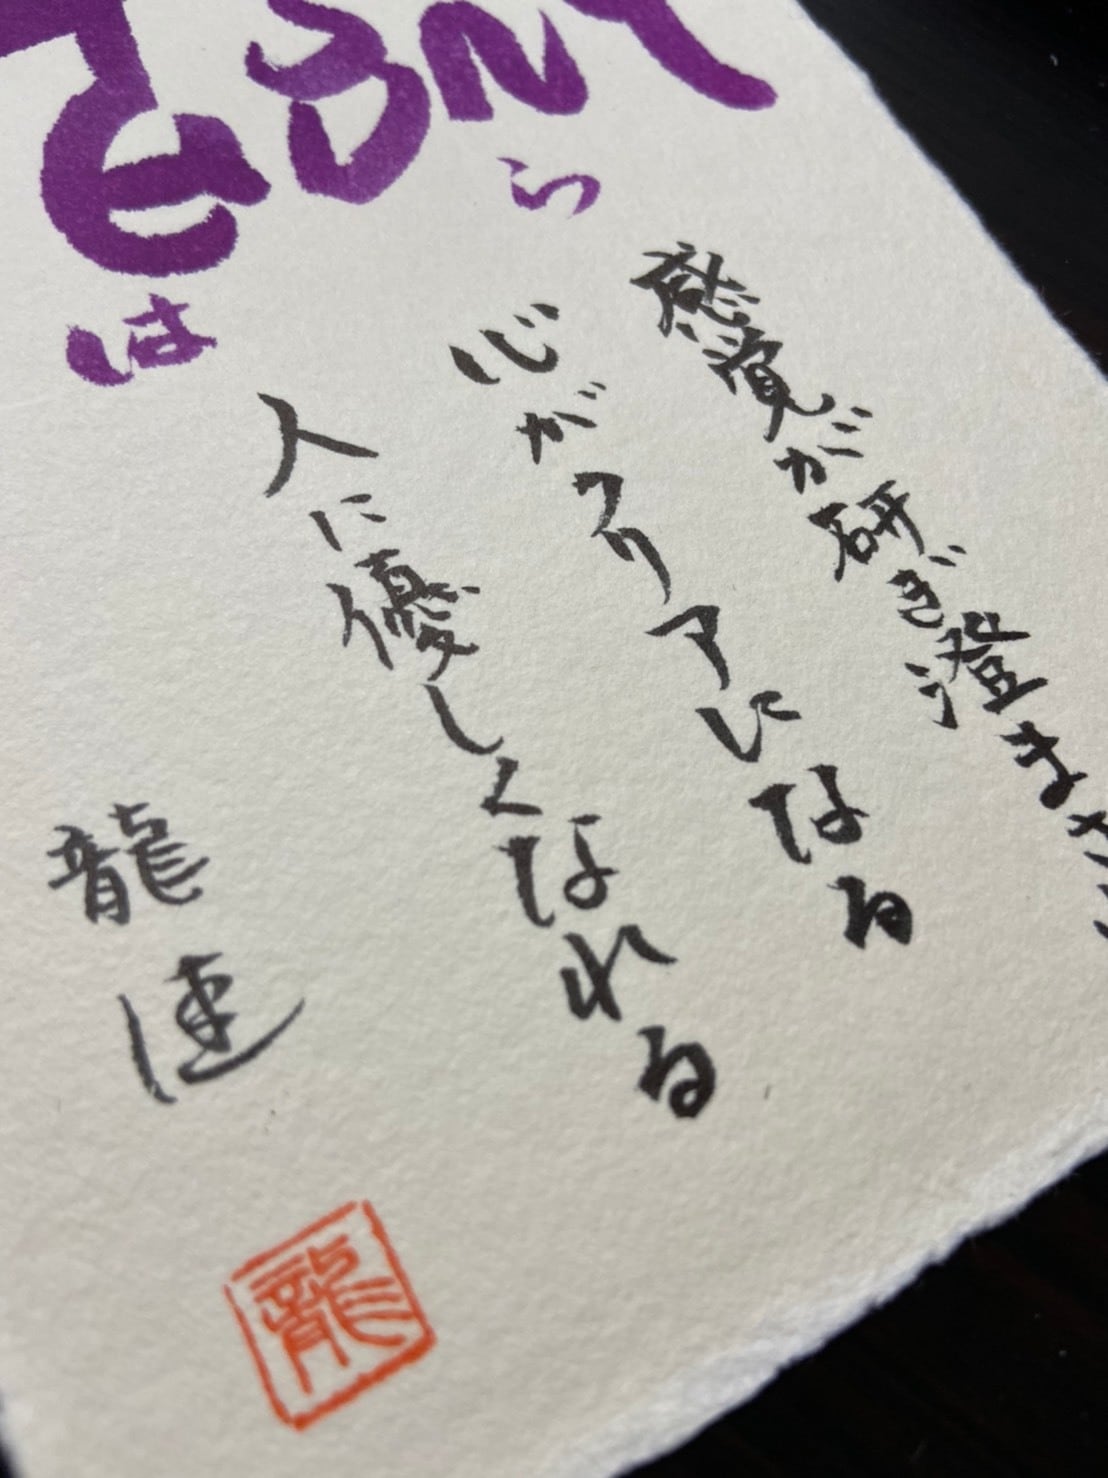 ら
は
感覚が研ぎ澄まさ
心がクリアになる
人に優しくなれる
龍速
龍